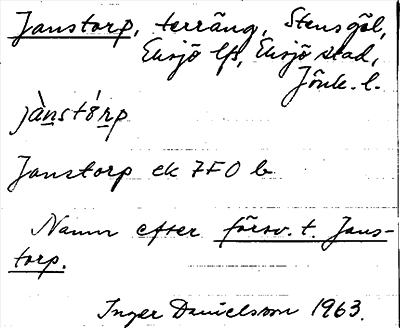 Janstorp, terräng, Stensgöl,
Eksjö lfs, Eksjö stad,
Jönk. l.
jànstó̀rp
Janstorp ek 7F0 b
Namn efter försv. t. Jans-
torp.
Inger Danielsson 1963.